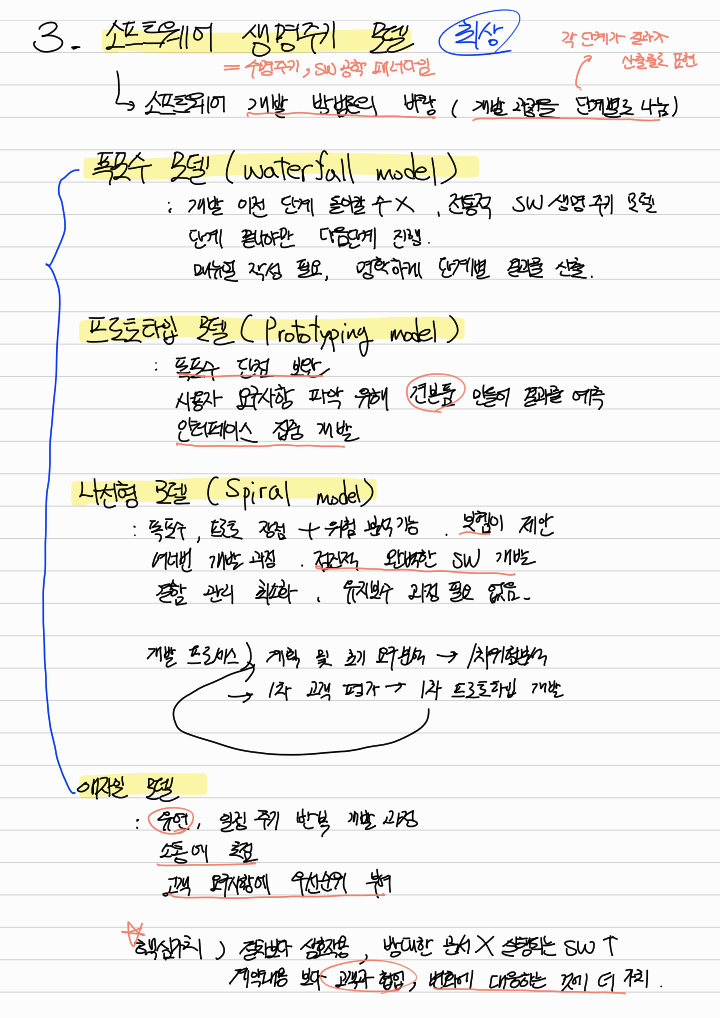 3. 소프트웨어 생명주기 모델 최상
= 수명주기, SW 공학 패너다임
각 단계가 결과가
산출물로 표현
↳ 소프트웨어 개발 방법론의 바탕 ( 개발 과정을 단계별로 나눔)
폭포수 모델 ( waterfall model )
: 개발 이전 단계 돌아갈 수 X , 전통적 SW 생명 주기 모델
단계 끝나야만 다음단계 진행.
매뉴얼 작성 필요, 명확하게 단계별 결과물 산출.
프로토타입 모델 ( Prototyping model )
: 폭포수 단점 보완
사용자 요구사항 파악 위해 견본품 만들어 결과물 예측
인터페이스 집중 개발
나선형 모델 ( Spiral model)
: 폭포수, 프로토 장점 + 위험 분석 기능 . 보헴이 제안
여러번 개발 과정 . 점진적 완벽한 SW 개발
결함 관리 최소화 , 유지보수 과정 필요 없음.
개발 프로세스 ) 계획 및 초기 요구분석 → 1차위험분석
→ 1차 고객 평가 → 1차 프로토타입 개발
애자일 모델
: 유연, 일정 주기 반복 개발 과정
소통에 초점
고객 요구사항에 우선순위 부여
☆ 핵심가치 ) 절차보다 상호작용 , 방대한 문서 X 실행되는 SW ↑
계약내용 보다 고객과 협업, 변화에 대응하는 것에 더 가치 .